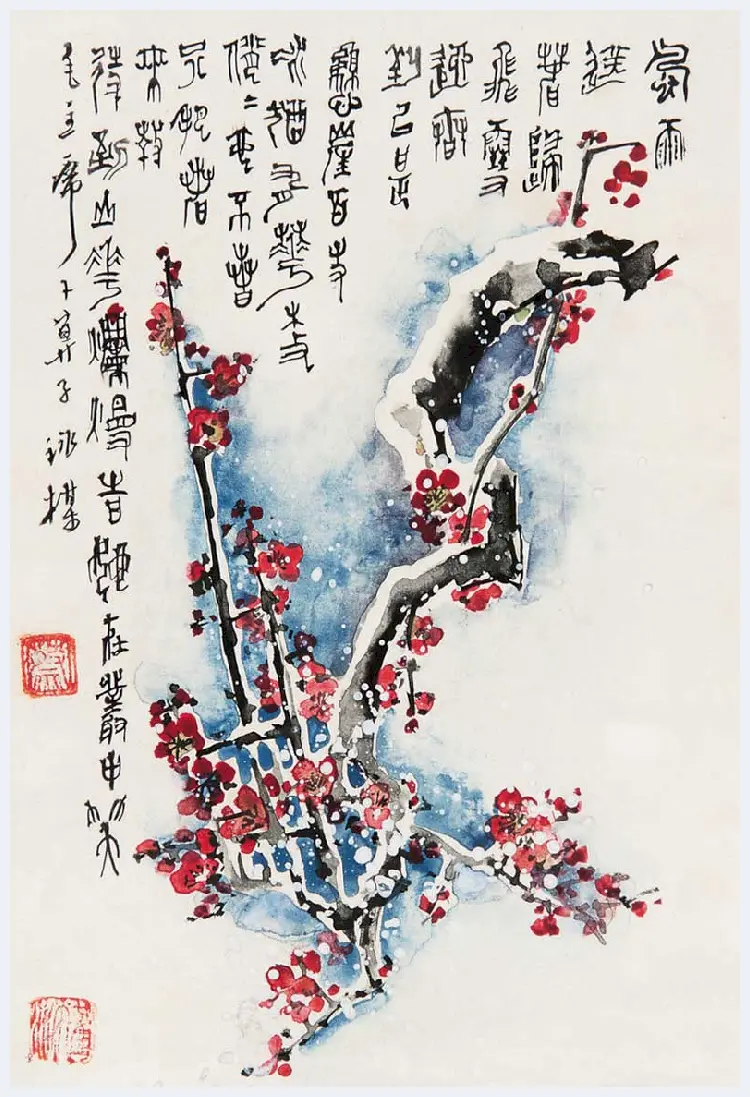 風雨
送
春歸
飛雪
迎春
到已是
懸崖百丈
冰猶有花枝
俏〻也不春
只把春
來報
待到山花爛熳旹她在叢中笑
毛主席卜算子詠梅